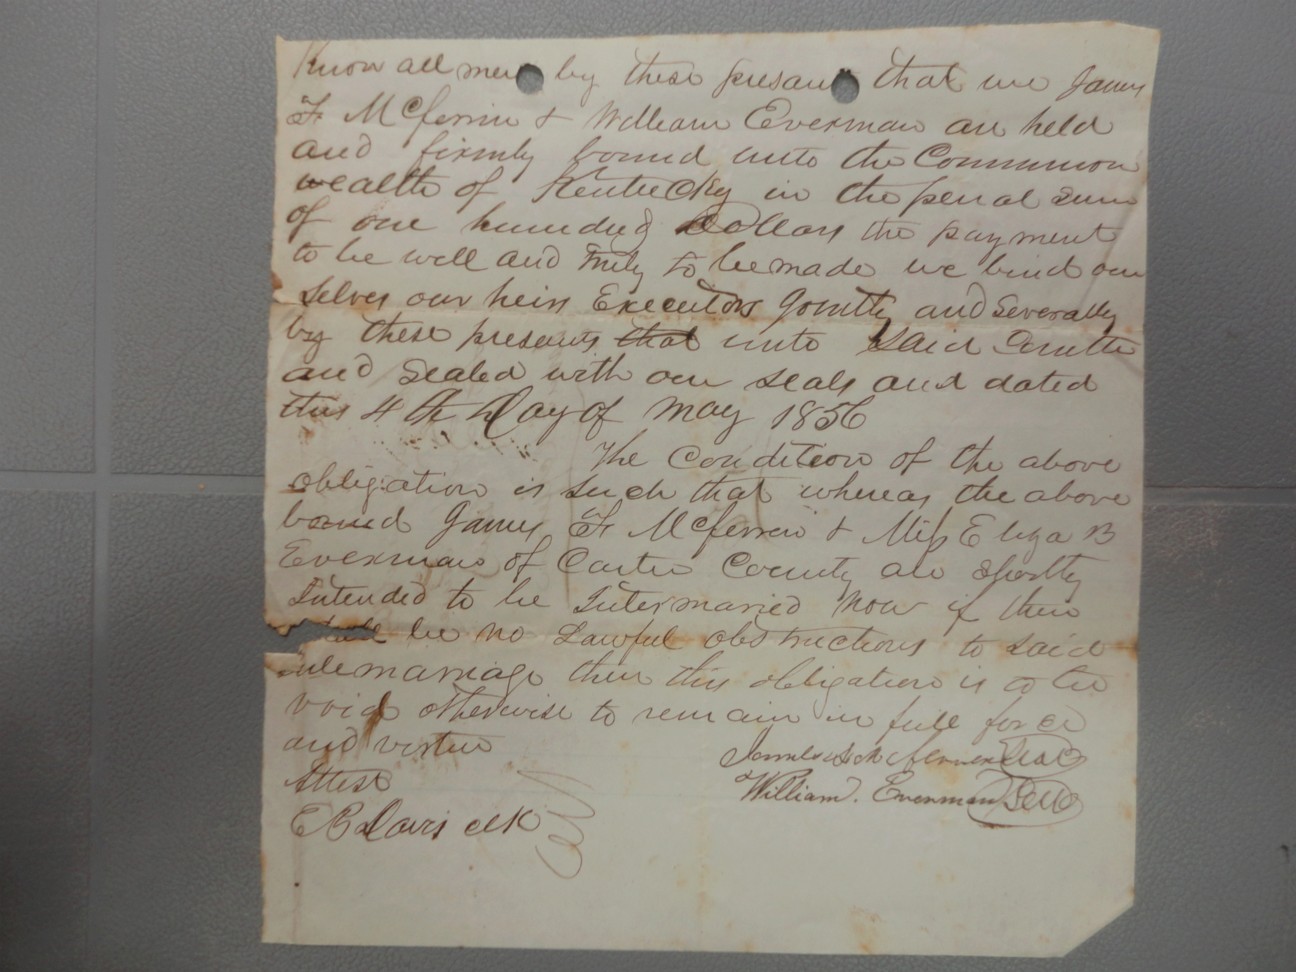 Know all men by these presants that we James
F McFerrin & William Everman are held
and firmly bound unto the Common
wealth of Kentucky in the penal sum
of one hundred Dollars the payment
to be well and truly to be made we bind our
selves our heirs Executors Jointly and Severally
by these presants that unto Said
and Sealed with our seals and dated
this 4th Day of May 1856
The Condition of the above
obligation is such that whereas the above
bound James F McFerrin & Miss Eliza B
Everman of Carter County are shortly
Intended to be Intermarried Now if there
shall be no Lawful obstructions to said
marriage then this obligation is to be
void otherwise to remain in full force
and virtue
James McFerrin Seal
Attest
William. Everman Seal
E B Davis clk